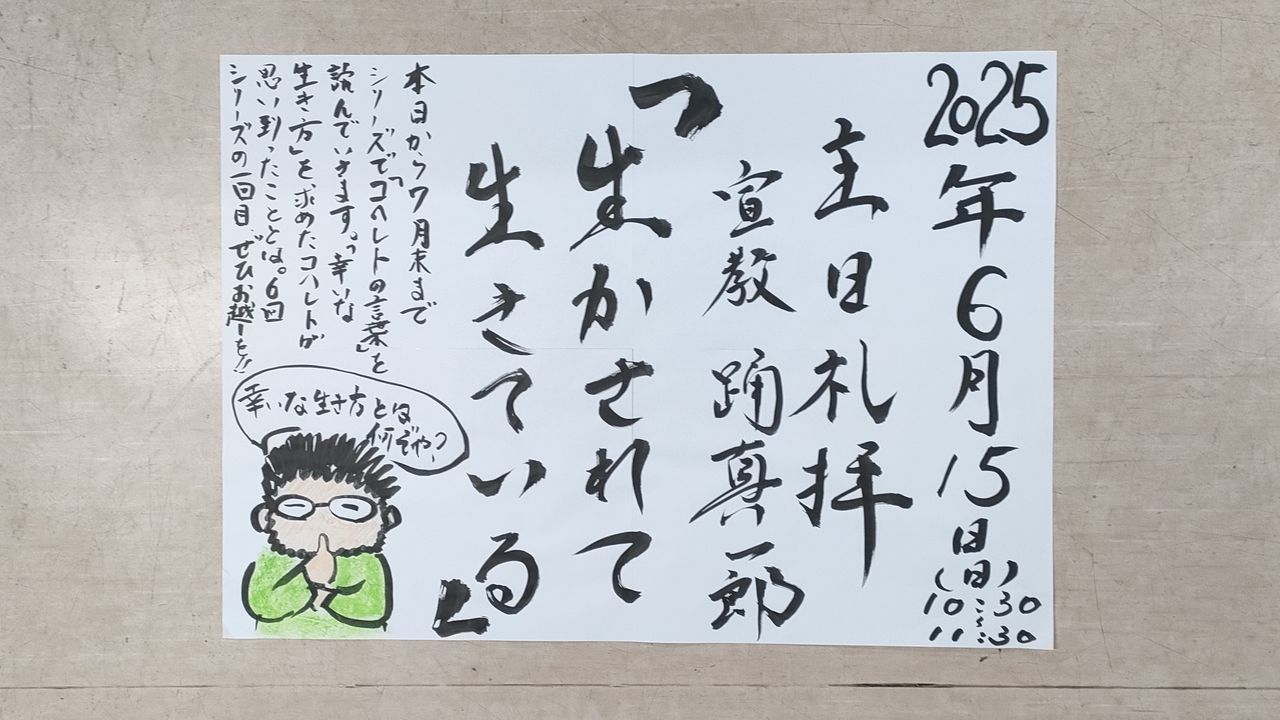 2025年6月15日(日)
10:30〜
11:30
主日礼拝
宣教 踊真一郎
「生かされて
生きている」
本日から7月末まで
シリーズで「コヘレトの言葉」を
読んでいきます。「幸いな
生き方」を求めたコヘレトが
思い到ったこととは。6回
シリーズの一回目、ぜひお越しを!!
幸いな生き方とは
何ぞや?